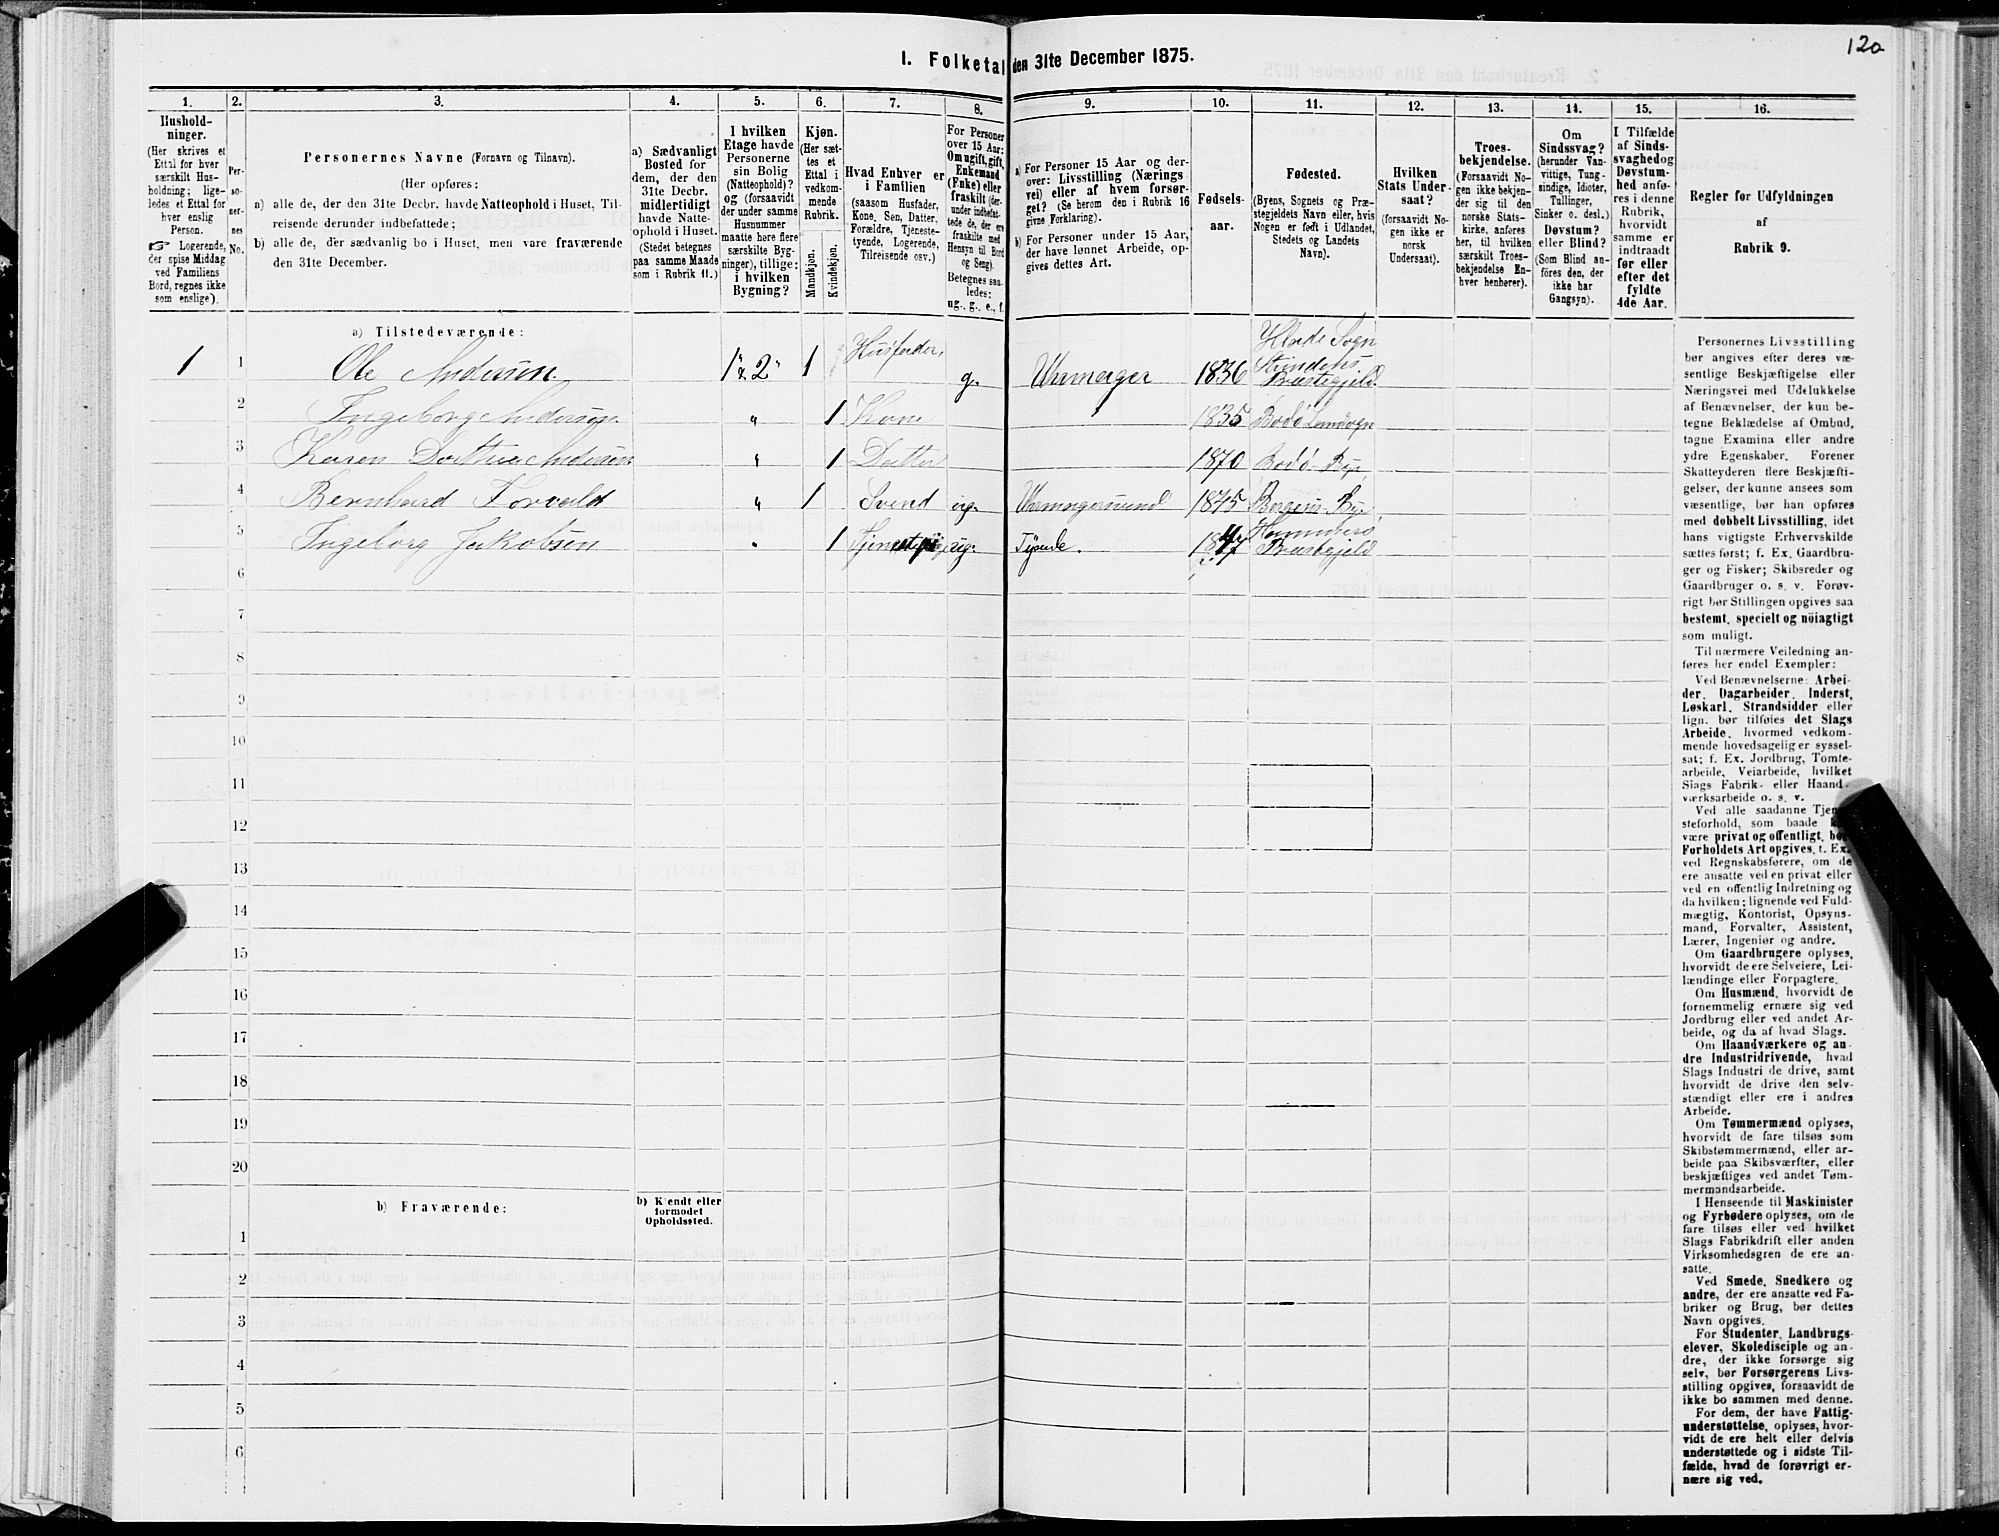 12a
1. Folketal den 31te December 1875.
1. 2. 3. 4. 5. 6. 7. 8. 9. 10. 11. 12. 13. 14. 15. 16.
Hushold-
ninger.
(Her skrives et
Ettal for hver
særskilt Hus-
holdning; lige-
ledes et Ettal for
hver enslig
Person.
☞ Logerende,
der spise Middag
ved Familiens
Bord, regnes ikke
som enslige).
Per-
so-
ner-
nes
No.
Personernes Navne (Fornavn og Tilnavn).
(Her opføres:
a) alle de, der den 31te Decbr. havde Natteophold i Huset, Til-
reisende derunder indbefattede;
b) alle de, der sædvanlig bo i Huset, men vare fraværende
den 31te December.
a) Sædvanligt
Bosted for
dem, der den
31te Decbr.
midlertidigt
havde Natte-
ophold i Huset.
(Stedet betegnes
paa samme Maade
som i Rubrik 11.)
I hvilken
Etage havde
Personerne
sin Bolig
(Natteophold)?
og (forsaavidt
der under samme
Husnummer
maatte høre flere
særskilte Byg-
ninger), tillige:
i hvilken
Bygning?
Kjøn.
(Her sæt-
tes et
Ettal i
vedkom-
mende
Rubrik.
Mandkjøn.
Kvindekjøn.
Hvad Enhver er
i Familien
(saasom Husfader,
Kone, Søn, Datter,
Forældre, Tjeneste-
tyende, Logerende,
Tilreisende osv.)
For Personer
over 15 Aar:
Om ugift, gift,
Enkemand
(Enke) eller
fraskilt (der-
under indbefat-
tede de, der ere
fraskilte med
Hensyn til Bord
og Seng).
Betegnes saa-
ledes:
ug., g., e., f.
a) For Personer 15 Aar og der-
over: Livsstilling (Nærings-
vei) eller af hvem forsør-
get? (Se herom den i Rubrik 16
givne Forklaring).
b) For Personer under 15 Aar,
der have lønnet Arbeide, op-
gives dettes Art.
Fødsels-
aar.
Fødested.
(Byens, Sognets og Præ-
stegjeldets Navn eller, hvis
Nogen er født i Udlandet,
Stedets og Landets
Navn).
Hvilken
Stats Under-
saat?
(forsaavidt No-
gen ikke er
norsk
Undersaat).
Troes-
bekjendelse.
(Forsaavidt No-
gen ikke bekjen-
der sig til den
norske Stats-
kirke, anføres
her, til hvilken
særskilt Troes-
bekjendelse En-
hver henhører).
Om
Sindssvag?
(herunder Van-
vittige, Tung-
sindige, Idioter,
Tullinger,
Sinker o. desl.)
Døvstum?
eller Blind?
(Som Blind an-
føres den, der
ikke har
Gangsyn).
I Tilfælde
af Sinds-
svaghed og
Døvstum-
hed anfø-
res i denne
Rubrik,
hvorvidt
samme er
indtraadt
før eller
efter det
fyldte
4de Aar.
Regler for Udfyldningen
af
Rubrik 9.
a) Tilstedeværende:
1 1 Ole Andersen 1 & 2 1 Husfader, g. Uhrmager 1836 Hlade Sogn Strindens Præstegjeld
2 Ingeborg Andersen " 1 Kone 1835 Bodø Landsogn
3 Karen Dorthea Andersen " 1 Datter 1870 Bodø By
4 Bernhard Torvald " 1 Svend ug. Uhrmagersvend 1845 Bergens By
5 Ingeborg Jakobsen " 1 Tjenestepige ug. Tjende. 1847 Hammerø Præstegjeld
6
7
8
9
10
11
12
13
14
15
16
17
18
19
20
b) Fraværende:
b) Kjendt eller
formodet
Opholdssted.
1
2
3
4
5
6
Personernes Livsstilling
bør angives efter deres væ-
sentlige Beskjæftigelse eller
Næringsvei med Udelukkelse
af Benævnelser, der kun be-
tegne Beklædelse af Ombud,
tagne Examina eller andre
ydre Egenskaber. Forener
Skatteyderen flere Beskjæfti-
gelser, der kunne ansees som
væsentlige, bør han opføres
med dobbelt Livsstilling, idet
hans vigtigste Erhvervskilde
sættes først; f. Ex. Gaardbru-
ger og Fisker; Skibsreder og
Gaardbruger o. s. v. Forøv-
rigt bør Stillingen opgives saa
bestemt, specielt og nöiagtigt
som muligt.
Til nærmere Veiledning an-
føres her endel Exempler:
Ved Benævnelserne: Arbei-
der, Dagarbeider, Inderst,
Løskarl, Strandsidder eller
lign. bør tilføies det Slags
Arbeide, hvormed vedkom-
mende hovedsagelig er syssel-
sat; f. Ex. Jordbrug, Tomte-
arbeide, Veiarbeide, hvilket
Slags Fabrik- eller Haand-
værksarbeide o. s. v.
Ved alle saadanne Tjene-
steforhold, som baade kan
være privat og offentligt, bør
Forholdets Art opgives, f. Ex.
ved Regnskabsførere, om de
ere ansatte ved en privat eller
ved en offentlig Indretning og
da hvilken; lignende ved Fuld-
mægtig, Kontorist, Opsyns-
mand, Forvalter, Assistent,
Lærer, Ingeniør og andre.
Om Gaardbrugere oplyses,
hvorvidt de ere Selveiere, Lei-
lændinge eller Forpagtere.
Om Husmænd, hvorvidt de
fornemmelig ernære sig ved
Jordbrug eller ved andet Ar-
beide, og da af hvad Slags.
Om Haandværkere og an-
dre Industridrivende, hvad
Slags Industri de drive, samt
hvorvidt de drive den selv-
stændigt eller ere i andres
Arbeide.
Om Tømmermænd oplyses,
hvorvidt de fare tilsøs som
Skibstømmermænd, eller ar-
beide paa Skibsværfter, eller
beskjæftiges ved andet Tøm-
mermandsarbeide.
I Henseende til Maskinister
og Fyrbødere oplyses, om de
fare tilsøs eller ved hvilket
Slags Fabrikdrift eller anden
Virksomhedsgren de ere an-
satte.
Ved Smede, Snedkere og
andre, der ere ansatte ved Fa-
briker og Brug, bør dettes
Navn opgives.
For Studenter, Landbrugs-
elever, Skoledisciple og an-
dre, der ikke forsørge sig
selv, bør Forsørgerens Livs-
stilling opgives, forsaavidt de
ikke bo sammen med denne.
For dem, der have Fattig-
understøttelse, oplyses, hvor-
vidt de ere helt eller delvis
understøttede og i sidste Til-
fælde, hvad de forøvrigt er-
nære sig ved.